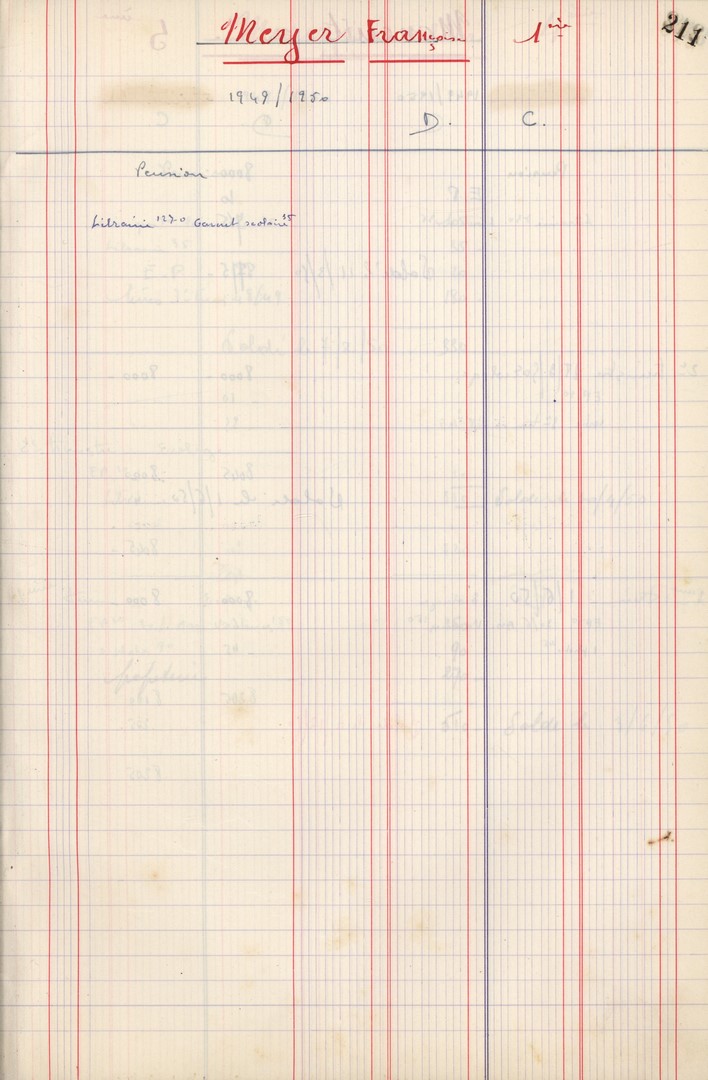 Meyer Françoise 1ère 211
1949/1950
D. C.
Pension
Librairie 1270 Carnet scolaire 35